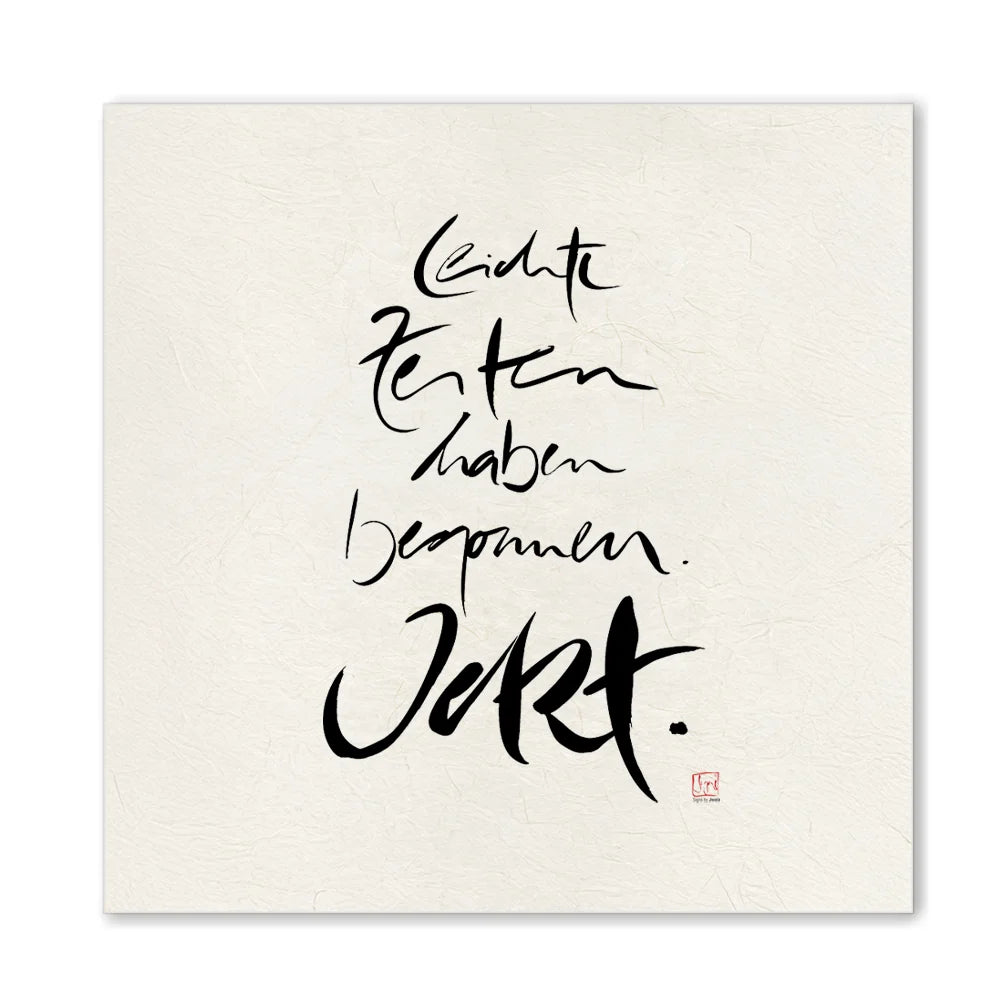 Leichte
Zeiten
haben
begonnen.
Jetzt.